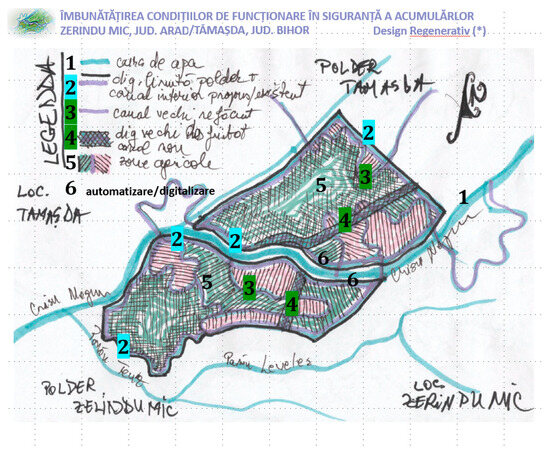 ÎMBUNĂTĂȚIREA CONDIȚIILOR DE FUNCȚIONARE ÎN SIGURANȚĂ A ACUMULĂRLOR
ZERINDU MIC, JUD. ARAD/TĂMAȘDA, JUD. BIHOR Design Regenerativ (*)
LEGENDA
1 cursa de apa
2 dig. polder +
canal interior propus/existent
3 canal vechi refacut
4 dig vechi
canal nou
5 zone agricole
6 automatizare/digitalizare
POLDER
TAMAȘDA
LOC.
TAMAȘDA
2
5
3
4
1
2
2
6
6
5
3
4
2
Crisu
Crisu
Pariu Leveles
POLDER
ZELINDU MIC
LOC.
ZERINDU MIC